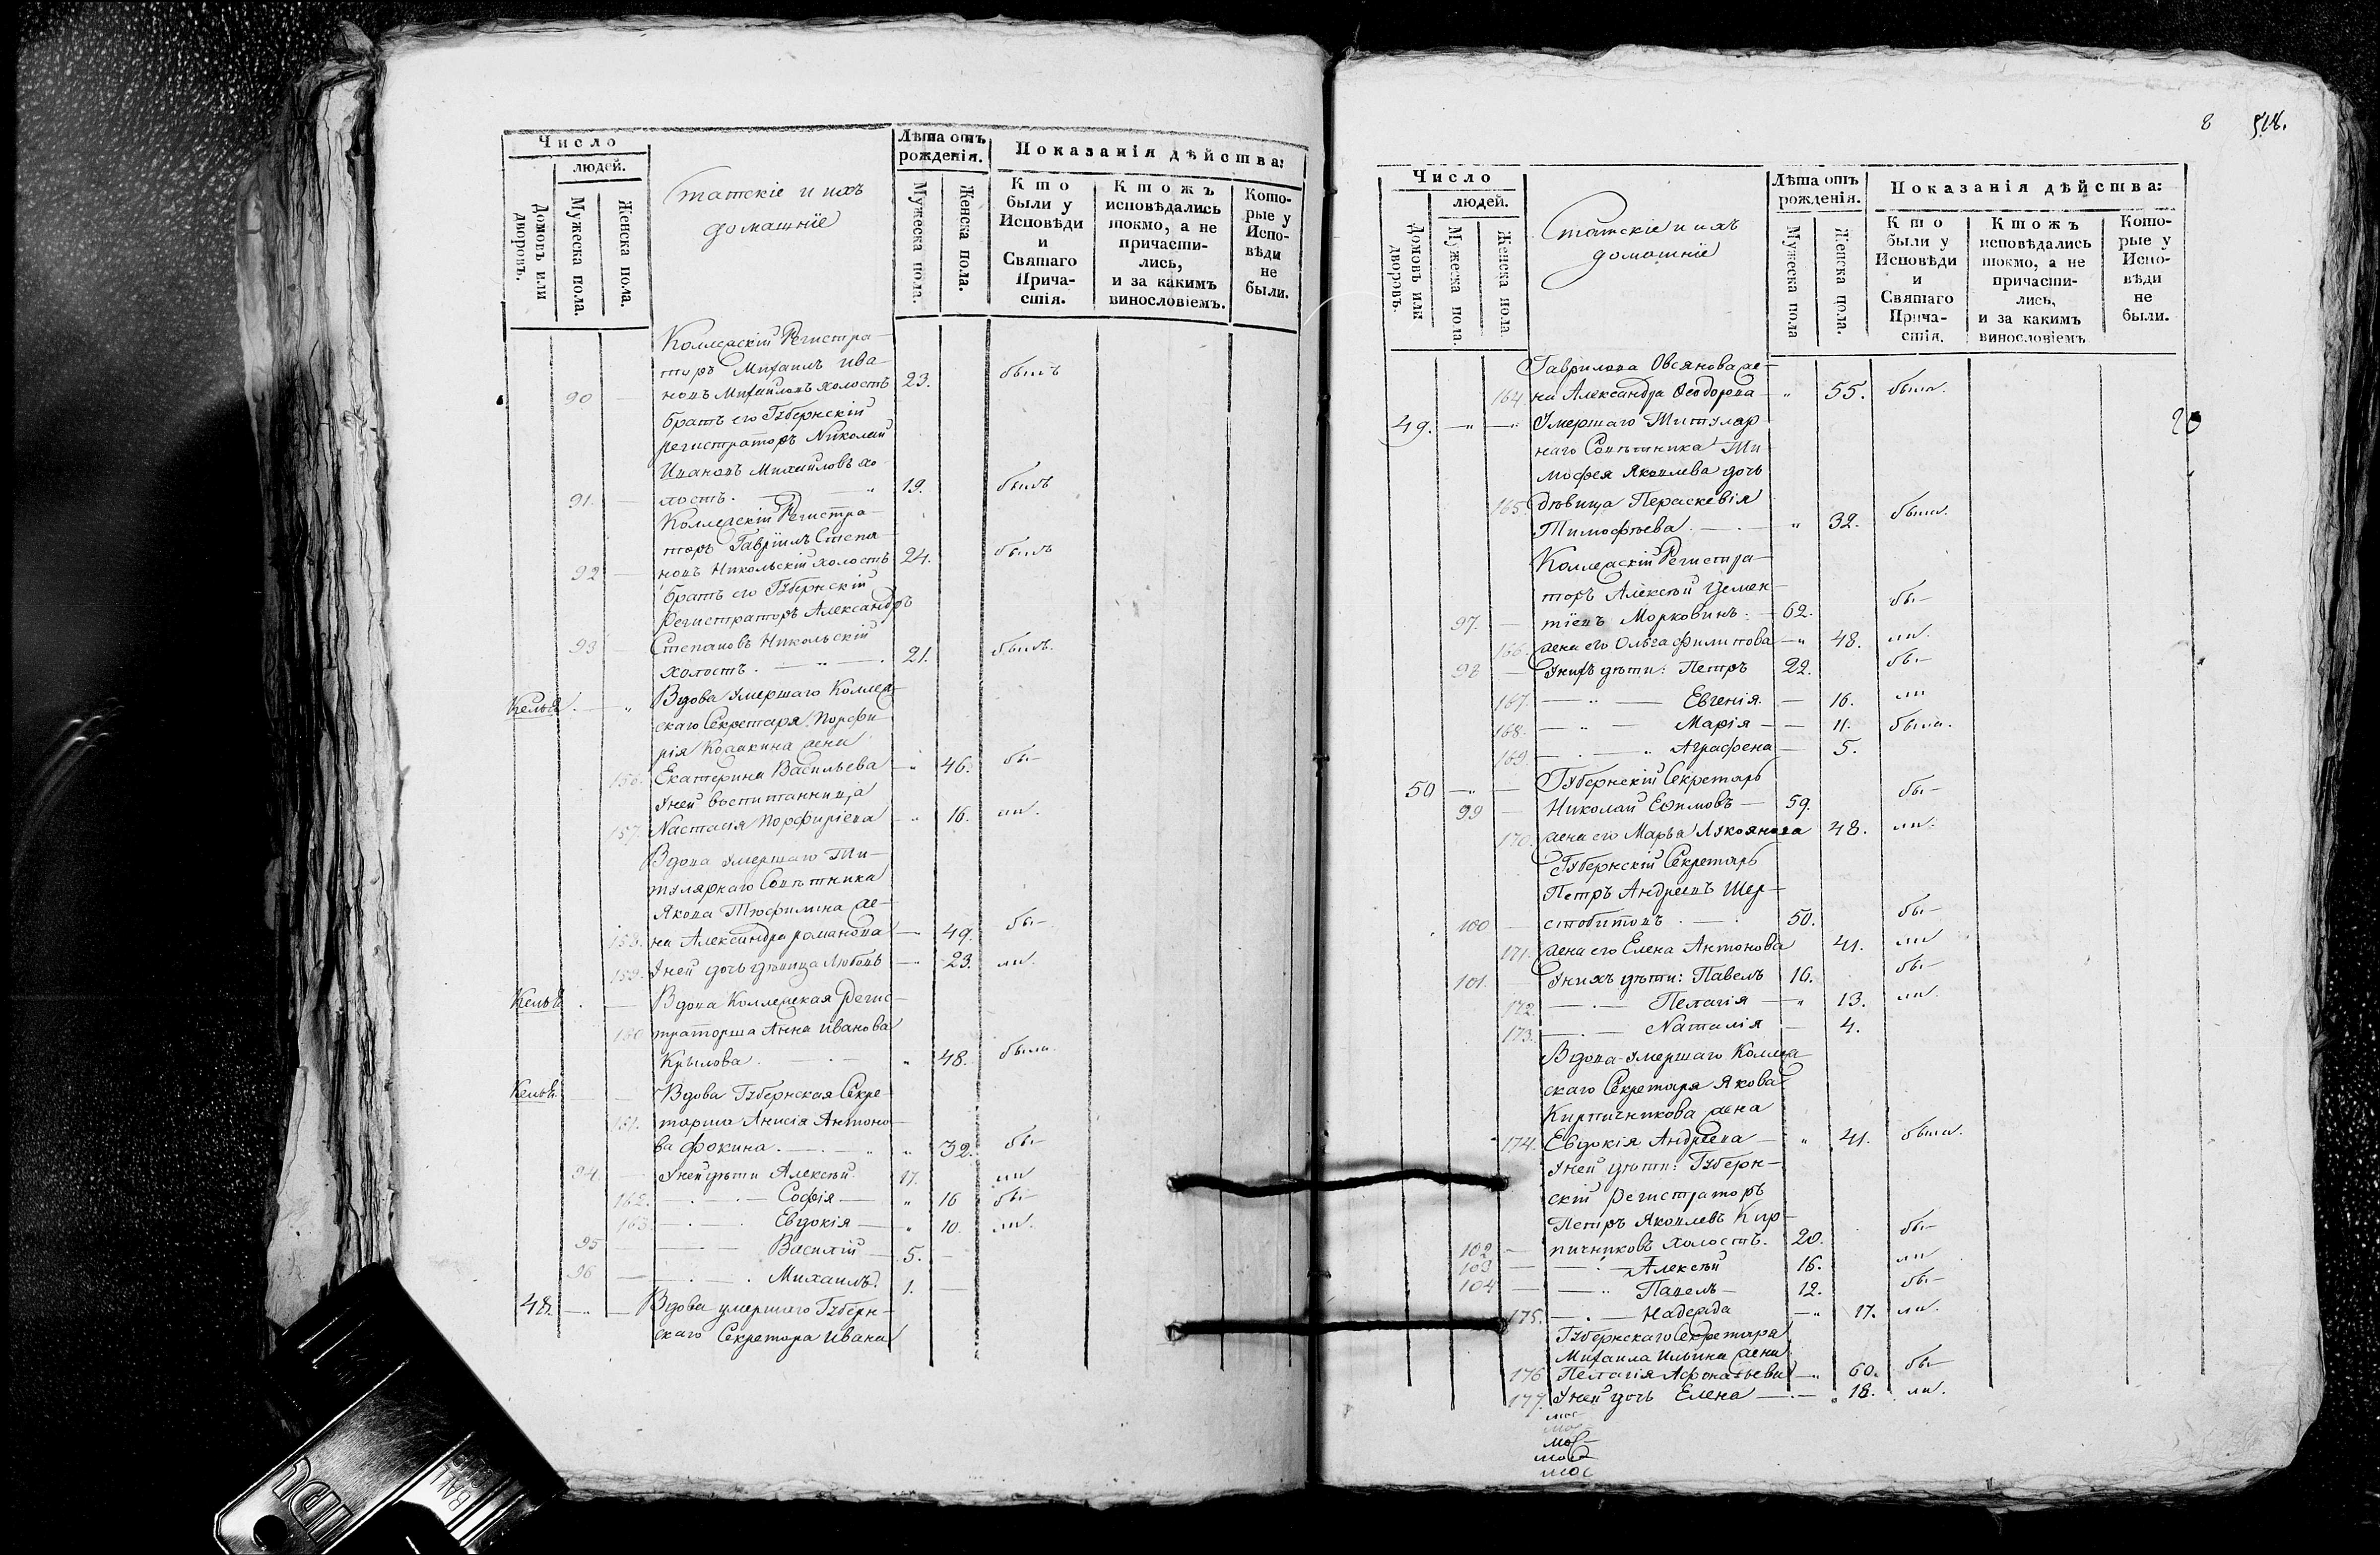 Число
людей.
Домовъ или дворовъ.
Мужеска пола.
Женска пола.
Статскіе и ихъ
домашніе
Лѣта отъ
рожденія.
Мужеска пола.
Женска пола.
Показанія дѣйства:
Кто были у Исповѣди и Святаго Прича-стія.
Ктожъ исповѣдались токмо, а не причасти-лись, и за какимъ винословіемъ.
Кото-рые у Испо-вѣди не были.
Коллежскій Регистра-
торъ Михаилъ Ива-
90 — новъ Михайловъ холостъ 23. былъ
братъ его Губернскій
регистраторъ Николай
Ивановъ Михайловъ хо-
91. — лостъ. — „ 19. былъ
Коллежскій Регистра-
торъ Гавріилъ Степа-
92 — новъ Никольскій холостъ 24. былъ
братъ его Губернскій
Регистраторъ Александръ
93 — Степановъ Никольскій
холостъ. — „ — . 21. былъ.
Келья. — „ Вдова умершаго Коллеж-
скаго Секретаря Порфи-
рія жена
156. Екатерина Васильева — „ 46. бы-
у ней воспитанница
157. Настасія Порфиріева — „ 16. ли.
Вдова умершаго Ти-
тулярнаго Совѣтника
Якова же-
158. на Александра Романова — 49. бы-
159. у ней дочь дѣвица Любовь — 23. ли.
Келья . — Вдова Коллежская Регис-
160 траторша Анна Иванова
Крылова . — . — „ 48. была.
Келья. — — Вдова Губернская Секре-
161. тарша Анисія Антоно-
ва Фокина . — . — „ „ 32. бы-
94. — у ней дѣти Алексѣй. 17. ли
162. — . — . — Софія — „ 16 бы-
163 — . — . Евдокія — „ 10. ли.
95 — — . — Василій — 5. —
96 — — . — . Михаилъ. 1. —
48. — „ — Вдова умершаго Губерн-
скаго Секретаря Ивана
8 518.
Число
людей.
Домовъ или дворовъ.
Мужеска пола.
Женска пола
Статскіе и ихъ
домашніе
Лѣта отъ
рожденія.
Мужеска пола
Женска пола.
Показанія дѣйства:
Кто были у Исповѣди и Святаго Прича-стія.
Ктожъ исповѣдались токмо, а не причасти-лись, и за какимъ винословіемъ
Кото-рые у Испо-вѣди не были.
Гаврилова Овсянова же-
164. на Александра Ѳеодорова — „ 55. была.
49. — „ — „ Умершаго Титуляр-
наго Совѣтника Ти-
мофея Яковлева дочь
165. дѣвица Пераскевія
Тимофѣева. — . — „ 32. была.
Коллежскій Регистра-
торъ Алексѣй
97. — Морковинъ. — 62. бы-
166. жена его Ольга Филипова — „ 48. ли.
98 — у нихъ дѣти: Петръ 22. бы-
167. — „ — Евгенія. — 16. ли
168. — „ — Марія — — 11. была.
169. — . — „ Аграфена — 5.
50 — „ — Губернскій Секретарь
99 — Николай Ефимовъ — 59. бы-
170. жена его Марья Лукоянова 48. ли.
Губернскій Секретарь
Петръ Андреевъ Шер-
100 — стобитовъ . — 50. бы-
171. жена его Елена Антонова 41. ли
101. — у нихъ дѣти: Павелъ 16. бы-
172. — . — Пелагія — „ 13. ли.
173. — . — Наталія — 4.
Вдова умершаго Коллеж-
скаго Секретаря Якова
Кирпичникова жена
174. Евдокія Андреева — „ 41. была.
у ней дѣти: Губерн-
скій регистраторъ
Петръ Яковлевъ Кир-
102 — пичниковъ холостъ. 20. бы-
103 — — . — Алексѣй 16. ли
104 — — „ Павелъ — 12. бы-
175. — . — Надежда — „ 17. ли.
Губернскаго Секретаря
Михаила Ильина жена
176 Пелагія Афонасьева — „ 60. бы-
177. у ней дочь Елена — . — „ 18. ли.